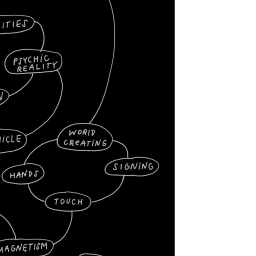 ITIES
PSYCHIC
REALITY
ICLE
WORLD
CREATING
SIGNING
HANDS
TOUCH
MAGNETISM